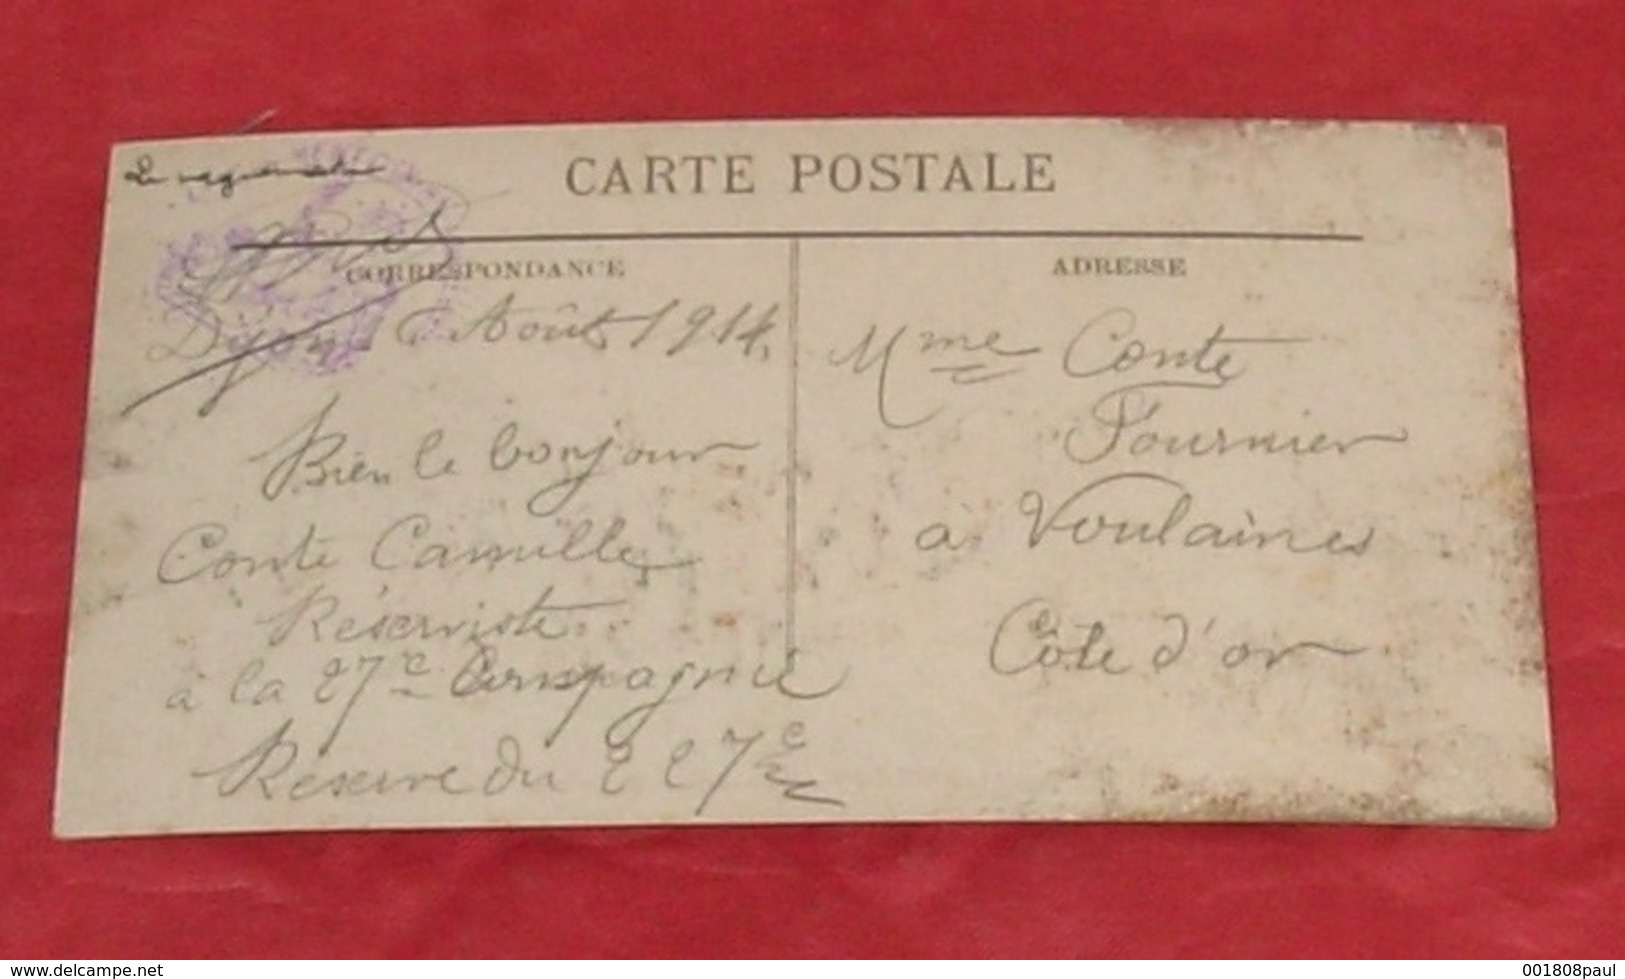 CARTE POSTALE
CORRESPONDANCE
Dijon 6 Août 1914.
Bien le bonjour
Conte Camille
Réserviste
à la 27e Compagnie
Réserve du 227e
ADRESSE
Mme Conte
Fournier
à Voulaines
Côte d'or
www.delcampe.net
001808paul